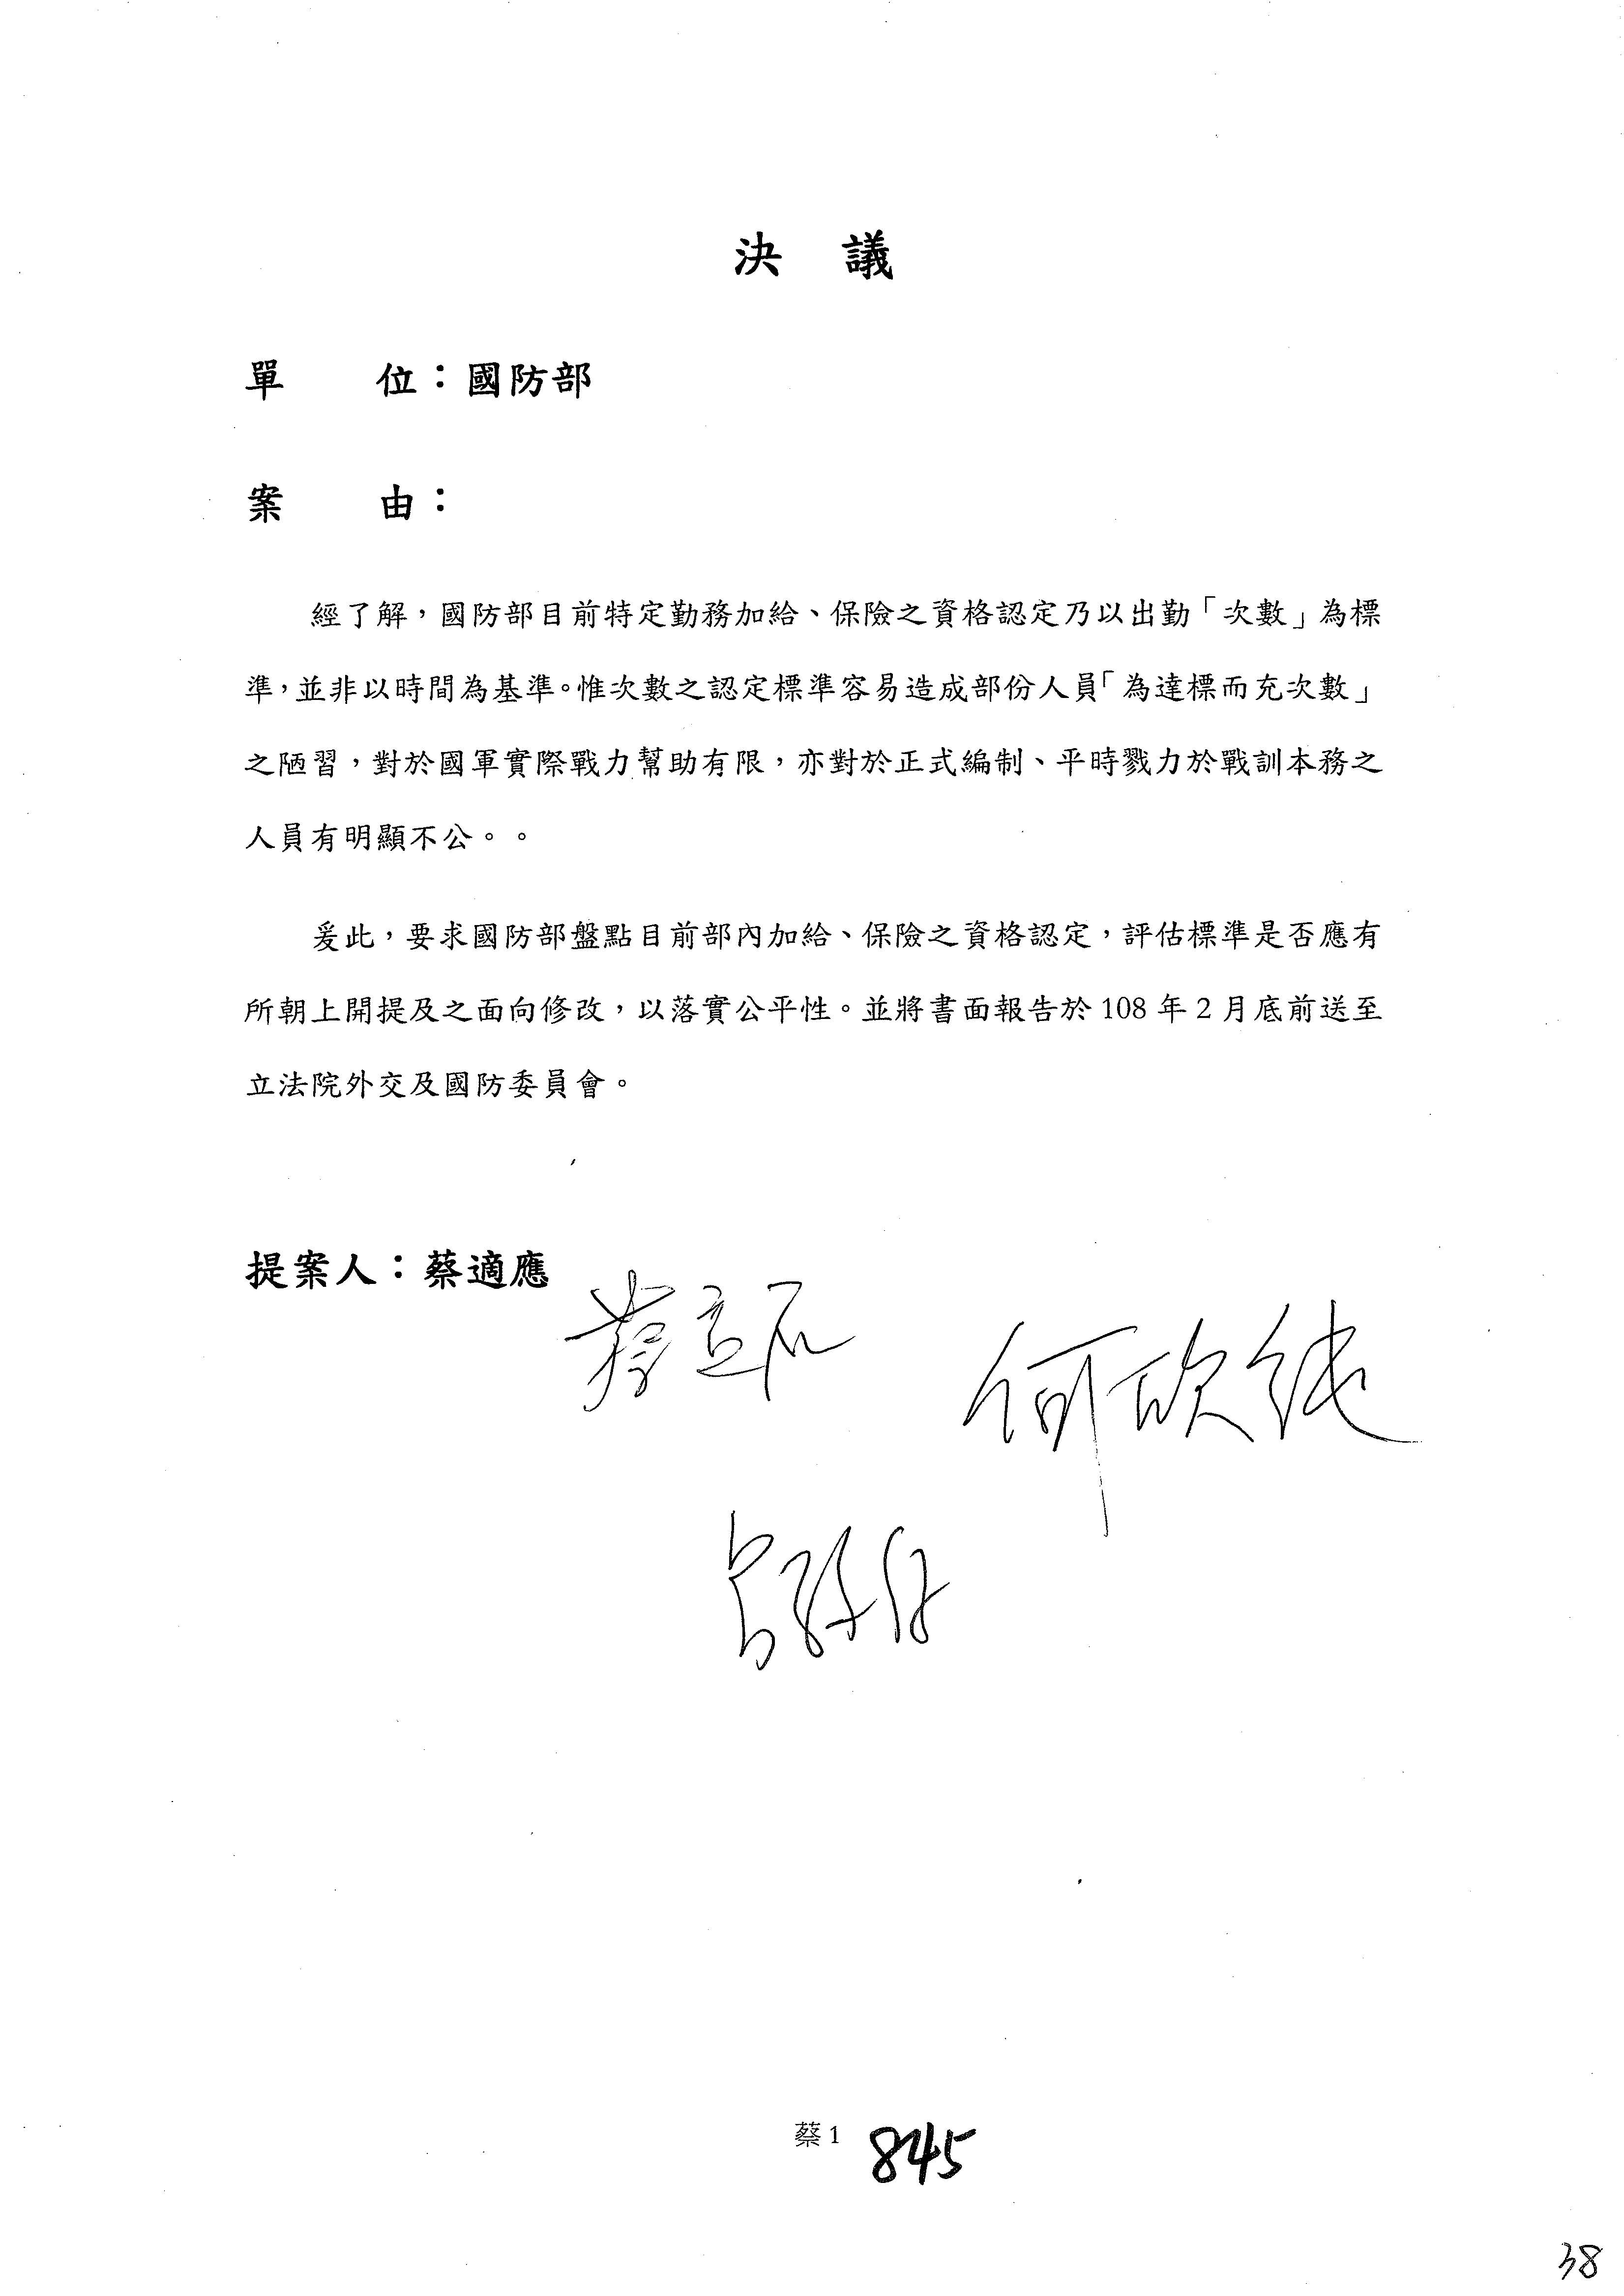 決 議
單 位：國防部
案 由：
經了解，國防部目前特定勤務加給、保險之資格認定乃以出勤「次數」為標
準，並非以時間為基準。惟次數之認定標準容易造成部份人員「為達標而充次數」
之陋習，對於國軍實際戰力幫助有限，亦對於正式編制、平時戮力於戰訓本務之
人員有明顯不公。。
爰此，要求國防部盤點目前部內加給、保險之資格認定，評估標準是否應有
所朝上開提及之面向修改，以落實公平性。並將書面報告於 108 年 2 月底前送至
立法院外交及國防委員會。
提案人：蔡適應
何欣純
蔡 1 845
38